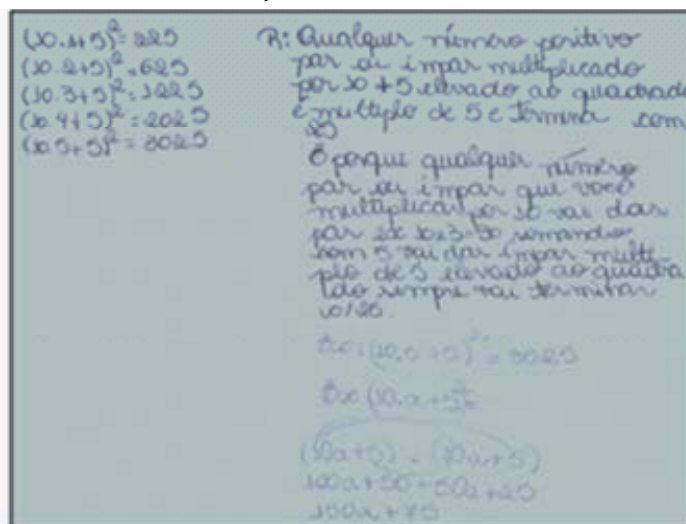 (10.1+5)² = 225
(10.2+5)² = 625
(10.3+5)² = 1225
(10.4+5)² = 2025
(10.5+5)² = 3025
R: Qualquer número positivo
par ou impar multiplicado
por 10 + 5 elevado ao quadrado
é multiplo de 5 e termina com
25
É porque qualquer número
par ou impar que você
multiplicar por 10 vai dar
par ex 10x3=30 somando
com 5 vai dar impar multi-
plo de 5 elevado ao quadra
do sempre vai terminar
c/25.
Ex: (10.5+5)² = 3025
Ex (10.a+5)²
(10a+5) . (10a+5)
100a+50+50a+25
150a+75